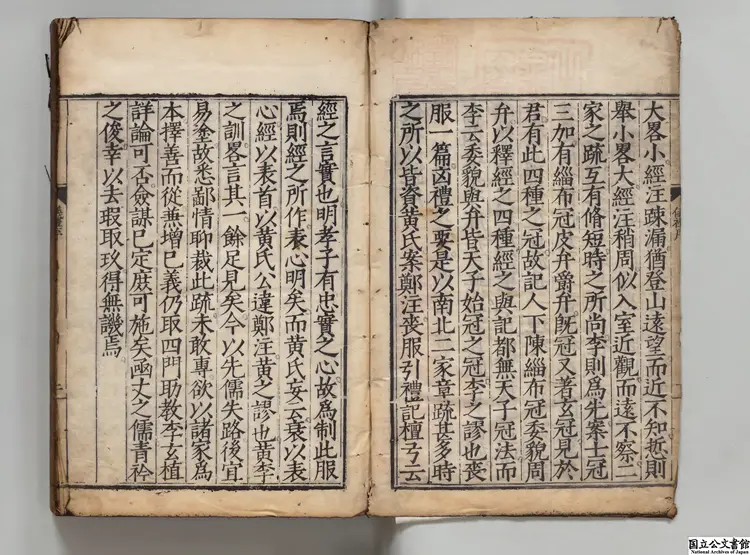 大畧小經注疎漏猶登山遠望而近不知悊則
舉小畧大經注稍周似入室近觀而遠不察二
家之疏互有脩短時之所尚李則爲先案士冠
三加有緇布冠皮弁爵弁旣冠又著玄冠見於
君有此四種之冠故記人下陳緇布冠委貌周
弁以釋經之四種經之與記都無天子冠法而
李云委貌與弁皆天子始冠之冠李之謬也喪
服一篇凶禮之要是以南北二家章疏甚多時
之所以皆脊黃氏案鄭注喪服引禮記檀弓云
經之言實也明孝子有忠實之心故爲制此服
焉則經之所作表心明矣而黃氏妄云衰以表
心經以表首以黃氏公違鄭注黃之謬也黃李
之訓畧言其一餘足見矣今以先儒失路後宜
易塗故悉鄙情聊裁此疏未敢專欲以諸家爲
本擇善而從兼增己義仍取四門助教李玄植
詳論可否僉謀已定庶可施矣函丈之儒青衿
之俊幸以去瑕取玖得無譏焉
国立公文書館
National Archives of Japan